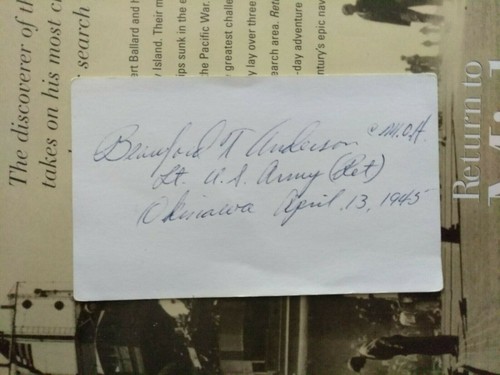 Beauford T Anderson @ M.O.H.
Lt. U.S. Army (Ret)
Okinawa April, 13, 1945
The discoverer of th
takes on his most c
search
ert Ballard and h
Island. Their m
ips sunk in the e
the Pacific War.
greatest challe
y lay over three
earch area. Ret
-day adventure
ntury's epic nav
Return to